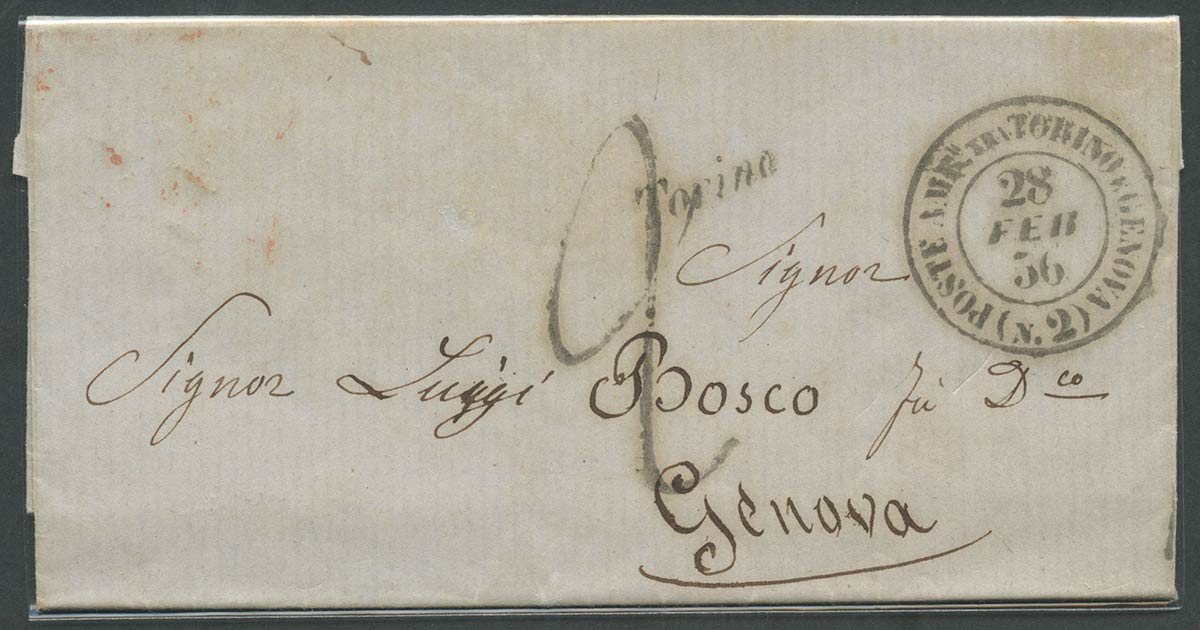 Torino
POSTE AMB.TI TRA TORINO E GENOVA (N. 2)
28
FEB
56
2
Signor
Signor Luiggi Bosco fù D.co
Genova